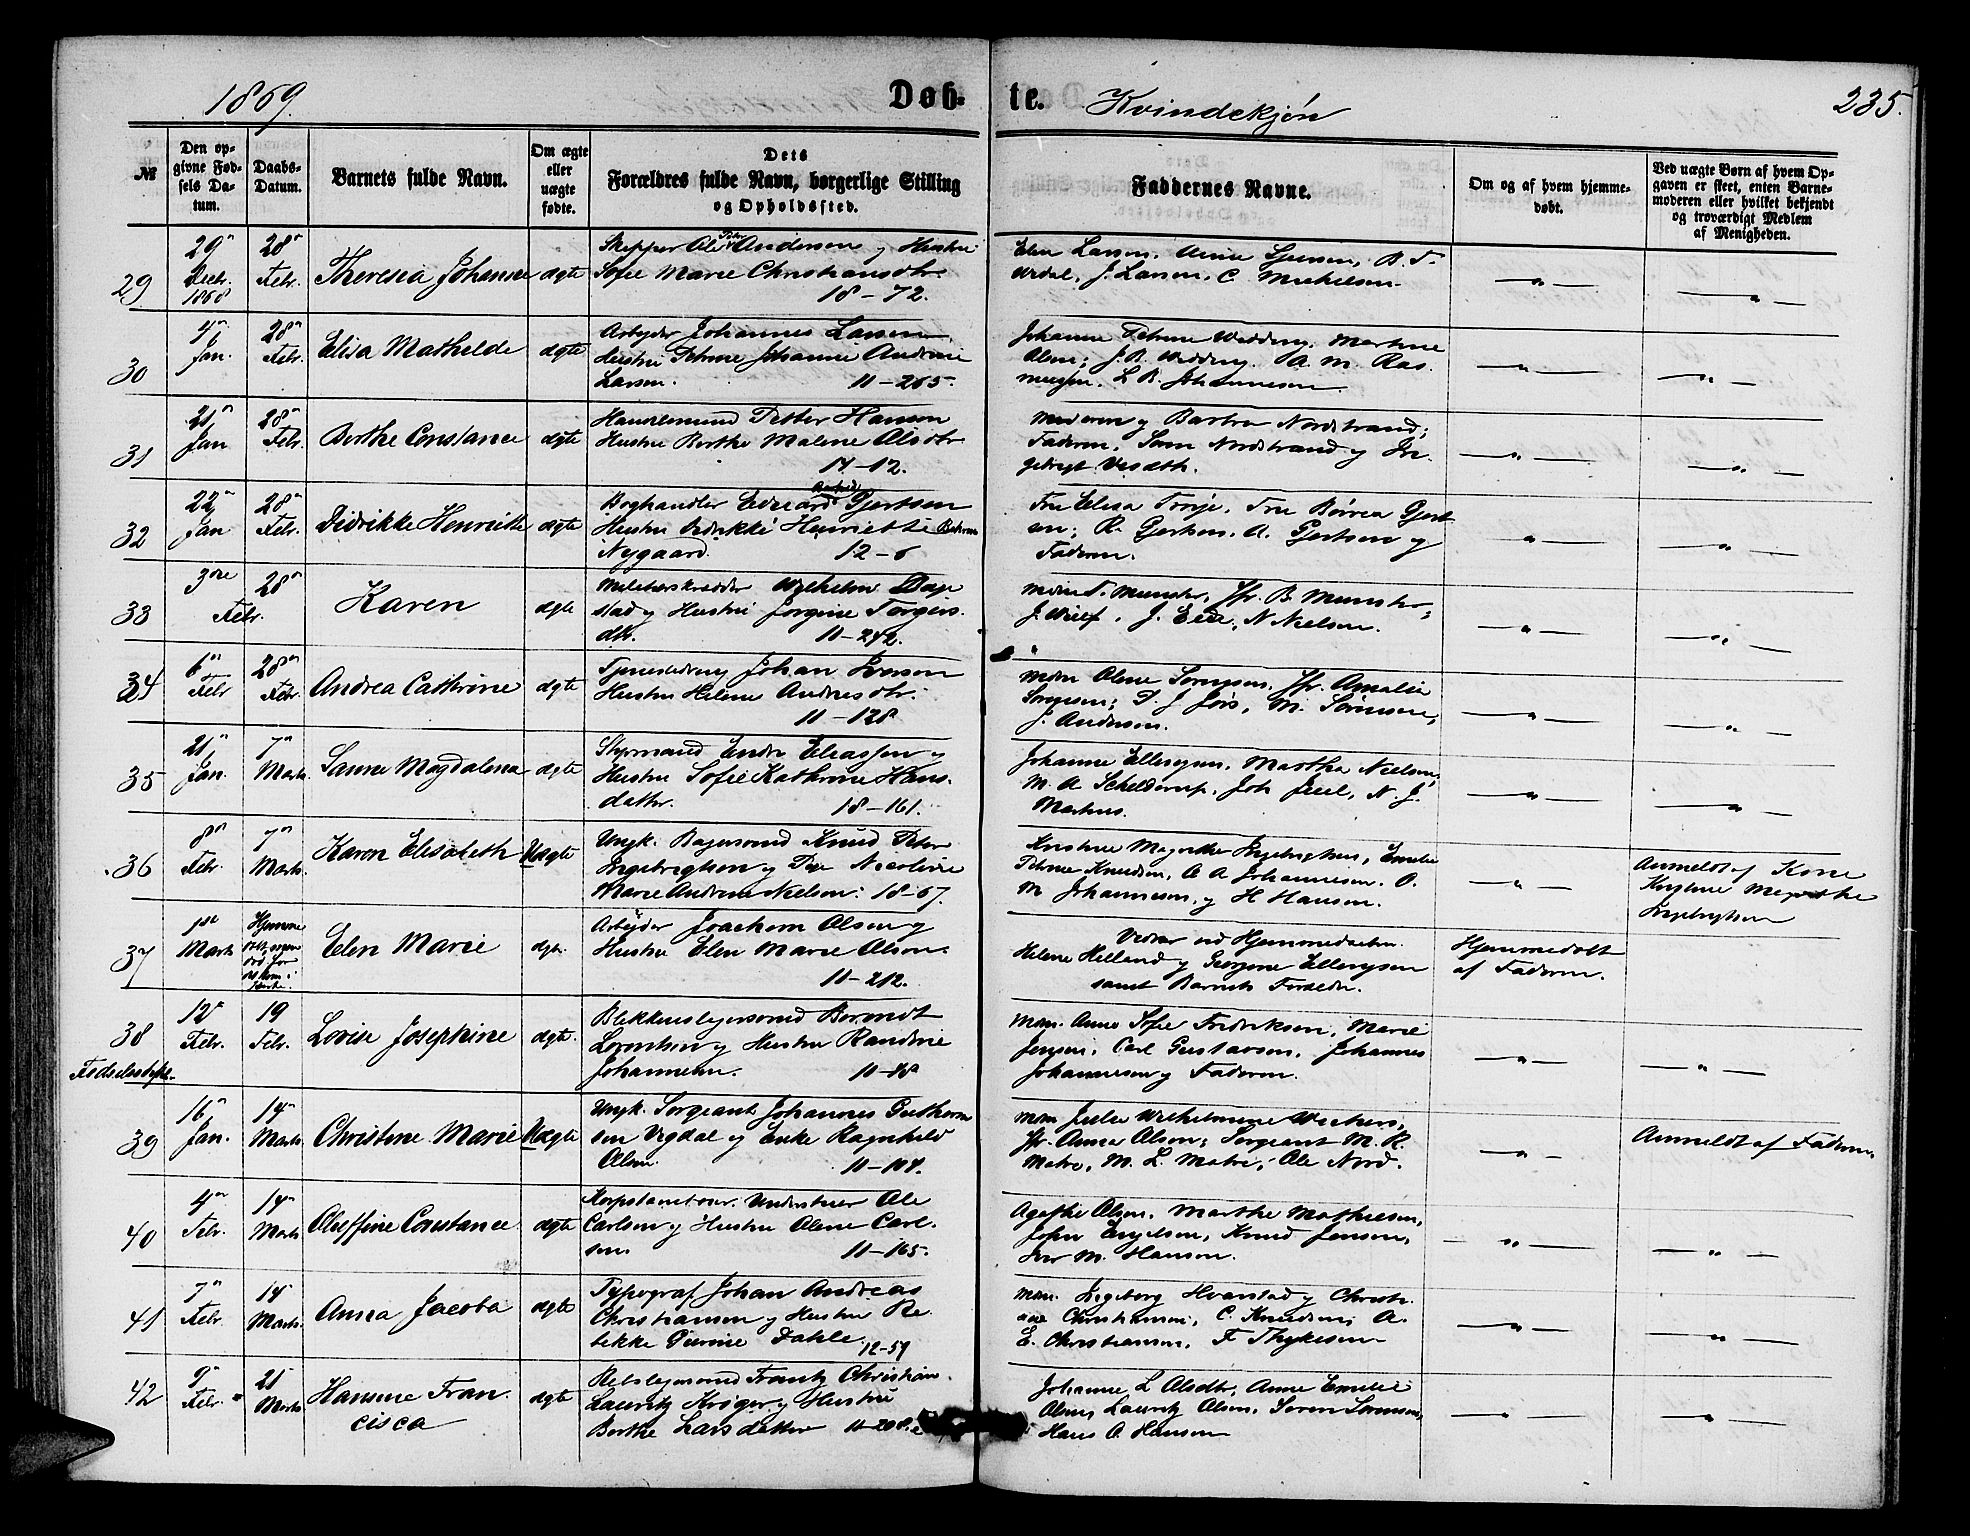 1869.
Døb-
te.
Kvindekjön
235.
№
Den opgivne Fødsels Datum.
Daabs-Datum.
Barnets fulde Navn.
Om ægte eller uægte fødte.
Dets Forældres fulde Navn, borgerlige Stilling og Opholdssted.
Faddernes Navne.
Om og af hvem hjemmedøbt.
Ved uægte Børn af hvem Opgaven er skeet, enten Barnemoderen eller hvilket bekjendt og troværdigt Medlem af Menigheden.
29
29 Decbr. 1868
28 Febr.
Theresia Johanne
ægte
Skipper Ole Peter Andersen og Hustru
Sofie Marie Christiansdtr.
18-72.
Elen Larsen,
J. Larsen, C. Michelsen
30
4 Jan.
28 Febr.
Elisa Mathilde
ægte
Arbejder Johannes Larsen
Hustru Petrine Johanne Andrine
Larsen.
11-265.
Johanne Petrine Wedding, Martine
Olsen; J. R. Wedding. A. M. Ras
mussen. L. B. Johannesen
31
21 Jan
28 Febr.
Berthe Constance
ægte
Handelsmand Petter Hansen
Hustru Berthe Malene Olsdtr
14-12.
Moderen og Barbra Nordstrand;
Faderen, Søren Nordstrand og
32
22 Jan
28 Febr.
Didrikke Henriette
ægte
Boghandler Edvard Gjertsen
Hustru Didrikke Henriette
Nygaard.
12-6
Fru Elisa Troje, Fru Gjert
sen; R. Gjertsen. A. Gjertsen og
Faderen.
33
3die Febr.
28
Karen
ægte
Wilhelm Dage
stad og Hustru Jorgine Torgers
dtr.
11-242.
Munster, Jfr. B. Munster,
J. Eide, N. Nielsen.
34
6 Febr
28 Febr.
Andrea Cathrine
ægte
Tjenestedreng Johan Iversen
Hustru Helene Andreasdtr.
11-128
Mdm Oline Sørensen. Jfr. Amalie
Sørensen; M. Sørensen,
J. Andersen.
35
21 Jan.
7 Marts.
Sanne Magdalena
ægte
Styrmand Endre Eliassen og
Hustru Sofie Kathrine Hans
datter.
18-161.
Johanne Ellingsen. Martha Nielsen,
M. A. Schelderup, Joh Juel, N. J.
Martens.
36
8 Febr.
7 Marts.
Karen Elisabeth
Uægte
Ungk. Bagersvend Knud Peter
Ingebrigtsen og Pige Nicoline
Marie Andrea Nielsen: 18-67.
Kristine Magrethe Ingebrigtsen, Emilie
Petrine Knudsen, C. A. Johannesen. O.
M. Johannesen, og H Hansen.
Anmeldt af Kone
Kristine Magrethe
Ingebrigtsen
37
1ste Marts
Elen Marie
ægte
Arbejder Joachim Olsen og
Hustru Elen Marie Olsen.
11-212.
Vidner ved Hjemmedaaben.
Helene Helland og Georgine Ellingsen
samt Barnets Forældre.
Hjemmedøbt
af Faderen.
38
Fødselsstift.
12 Febr.
19 Febr.
Lovise Josephine
ægte.
Blikkenslagersvend Berendt
Lorentsen og Hustru Randine
Johannesen.
11-88
Mdm. Anne Sofie Fredriksen, Marie
Jensen, Carl Gustavsen, Johannes
Johannesen og Faderen.
39
16 Jan.
14 Marts.
Christine Marie
Uægte
Ungk. Sergeant Johannes Guthorm
sen Vigdal og Enke Ragnhild
Olsen.
11-104.
Mdm. Julie Wilhelmine Wickers,
Jfr. Anna Olsen; Sergeant M. K.
Matre, M. L. Matre, Ole Nord.
Anmeldt af Faderen.
40
4 Febr.
14 Marts
Oleffine Constance
ægte
Ole
Carlsen og Hustru Oline Carl
sen.
11-165.
Agathe Olsen. Marthe Mathiesen,
John Engelsen, Knud Jensen,
Iver M. Hansen.
41
7 Febr.
14 Marts.
Anna Jacoba
ægte
Typograf Johan Andreas
Christiansen og Hustru Re
bekke Gurine Dahle.
12-59
Mdm. Ingeborg Hvarstad og Christi
ane Christiansen, C. Knudsen, A.
E. Christiansen, F. Thykesen
42
9 Febr.
21 Marts.
Hansine Fran
cisca
ægte
Frantz Christian
Lauritz Krøger og Hustru
Berthe Larsdatter
11-208.
Johanne L. Olsdtr, Anne Emilie
Olsen, Lauritz Olsen, Søren Sørensen,
Hans O. Hansen